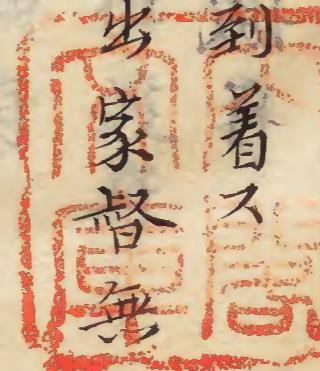 到着ス
出家督無